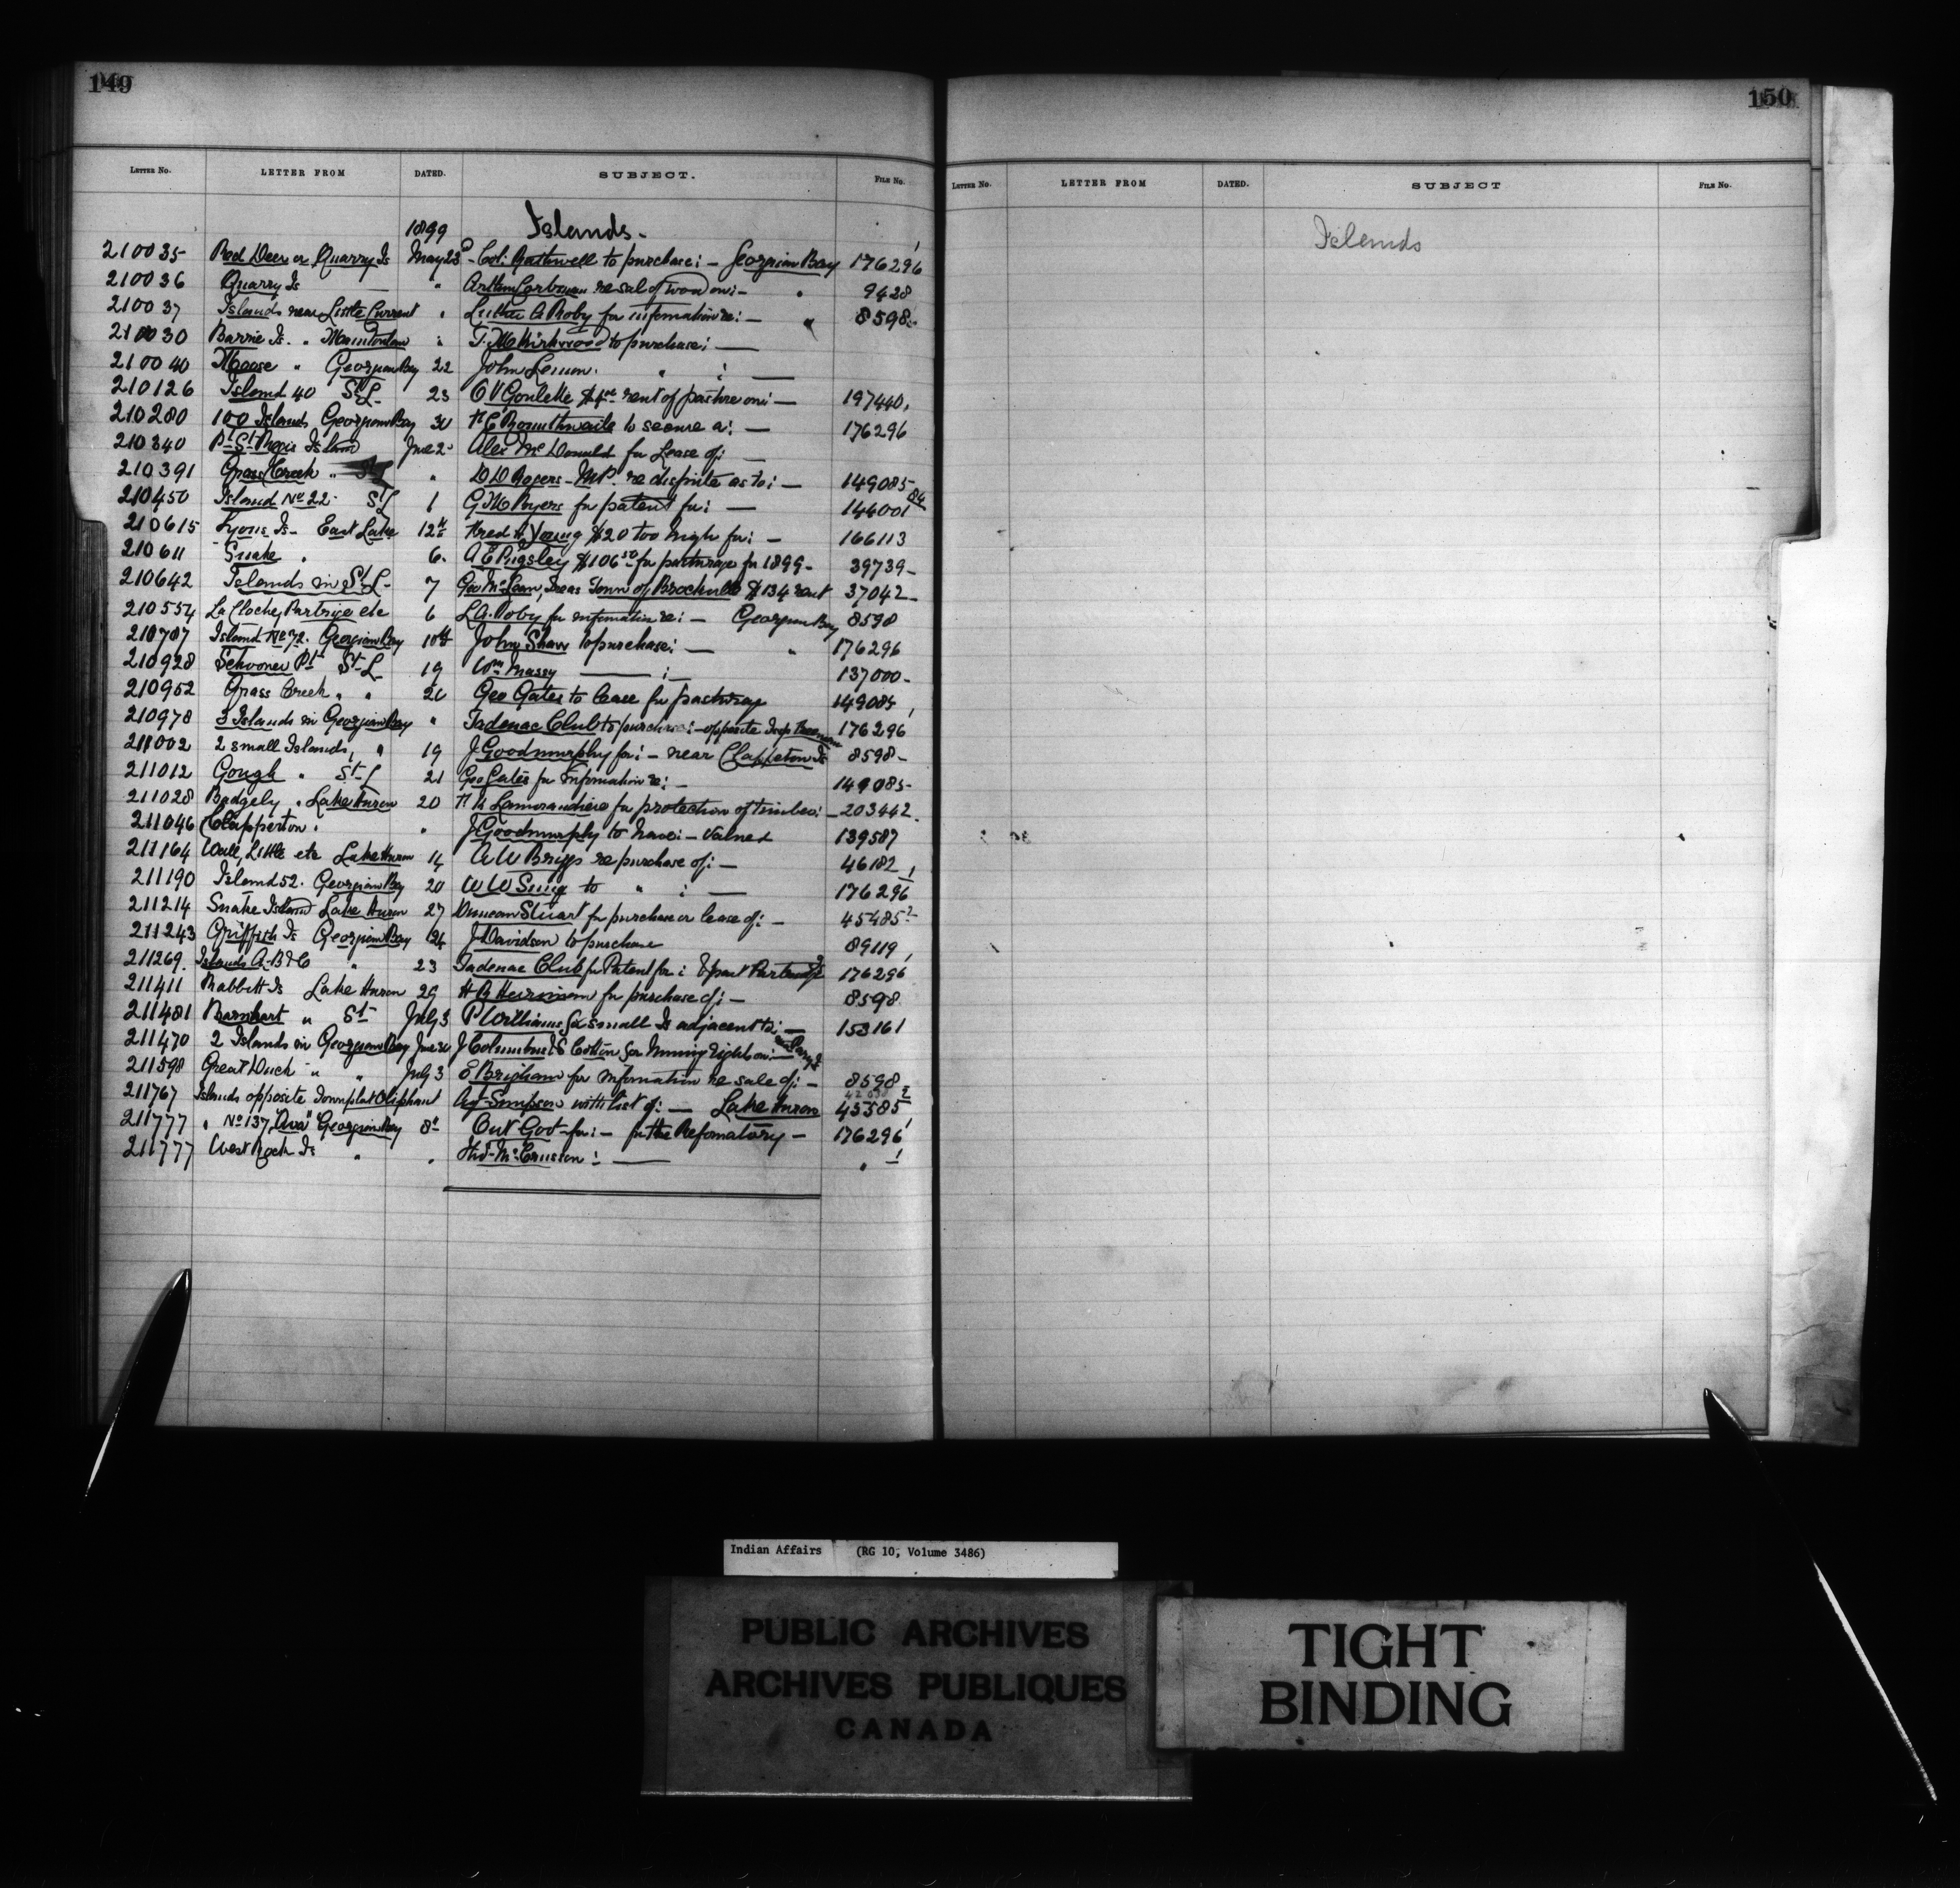 149
LETTER NO. LETTER FROM DATED. SUBJECT. FILE NO.
1899 Islands.
210035 Red Deer or Quarry Is May 23 Col. to purchase: - Georgian Bay 176296
210036 Quarry Is " re sale of wood on: - " 9428
210037 Islands near Little Current " Luther A Roby for information re: - " 8598
210030 Barrie Is. " Manitoulin " T. M Kirkwood to purchase: —
210040 Moose " Georgian Bay 22 John Lemon. " : —
210126 Island 40 St L 23 O V Goulette rent of pasture on: - 197440
210280 100 Islands Georgian Bay 30 H E Bounthwaite to secure a: - 176296
210340 Pt St Regis Island June 2 Alex McDonald for Lease of: —
210391 Grass Creek " St L " D D Rogers - M.P. re dispute as to: - 149085
210450 Island No 22 - St L 1 G M Ryers for patent for: - 144001 84
210615 Lyons Is - East Lake 12th Fred H Young $20 too high for: - 166113
210611 Snake " 6 A E Pugsley $106 50 for pasturage for 1899 - 39739 -
210642 Islands in St L - 7 Geo McLean, Treas Town of Brockville $134 rent 37042 -
210554 La Cloche, Partrige etc 6 L A. Roby for information re: - Georgian Bay 8598
210707 Island No 72. Georgian Bay 10th John Shaw to purchase: - " 176296
210928 Schooner Pt St L 19 Wm Massy — : — 137000 -
210952 Grass Creek " " 20 Geo Gates to lease for pasturage 149085
210978 3 Islands in Georgian Bay " Tadenac Club to purchase: - opposite 176296
211002 2 small Islands, " 19 J Goodmurphy for: - near Clapperton Is 8598 -
211012 Gough " St L 21 Geo Gates for information re: - 149085 -
211028 Badgely " Lake Huron 20 Lamorandiere for protection of timber: - 203442
211046 Clapperton " " J Goodmurphy to have: - valued 139587
211164 Wall, Little etc Lake Huron 14 A W Briggs re purchase of: - 46182
211190 Island 52. Georgian Bay 20 W W Suing to " : — 176296
211214 Snake Island Lake Huron 27 Duncan Stuart for purchase or lease of: - 45485 2
211243 Griffith Is Georgian Bay 24 J Davidson to purchase 89119
211269. Islands A-B & C " 23 Tadenac Club for Patent for: & part 176296
211411 Rabbitt Is Lake Huron 29 H R for purchase of: - 8598
211481 Barnhart " St - July 3 P Williams for small Is adjacent to: — 153161
211470 2 Islands in Georgian Bay June 30 J Columbus & for mining rights on: —
211598 Great Duck " " July 3 E Brigham for information re sale of: - 8598 -
211767 Islands opposite Townplat Oliphant Agt - Simpson with list of: — Lake Huron 45585 2
211777 " No 137, "Ava" Georgian Bay 8th Ont Govt - for: - for the Reformatory - 176296
211777 West Rock Is " " : — " 1
150
LETTER NO. LETTER FROM DATED. SUBJECT FILE NO.
Islands
Indian Affairs (RG 10, Volume 3486)
PUBLIC ARCHIVES
ARCHIVES PUBLIQUES
CANADA
TIGHT
BINDING